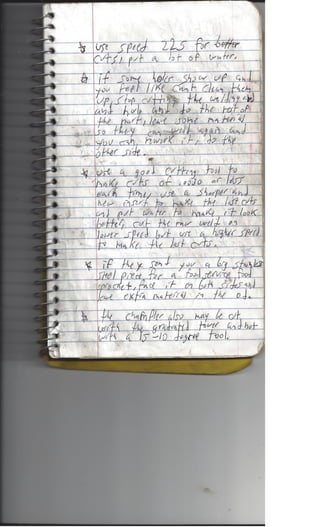 * use speed 225 for better
cuts, put a lot of water.
* if some holes show up and
you feel like cant clean them
up, stop cutting the welding
and and do the rest of
the parts, leave some material
so they can weld again and
you can rework it, do the
other side.
* use a good cutting tool to
make cuts of .020 or less
each time, use a sharper and
new insert to make the last cuts
and put water to make it look
better, cut the raw weld on
lower speed but use a higher speed
to make the last cuts.
* if they send you a big stainless
steel piece for a
sprocket, face it on both sides and
leave extra material in the o.d.
* the chamfer also may be cut
with the graduated tower and not
with a 15-10 degree tool.